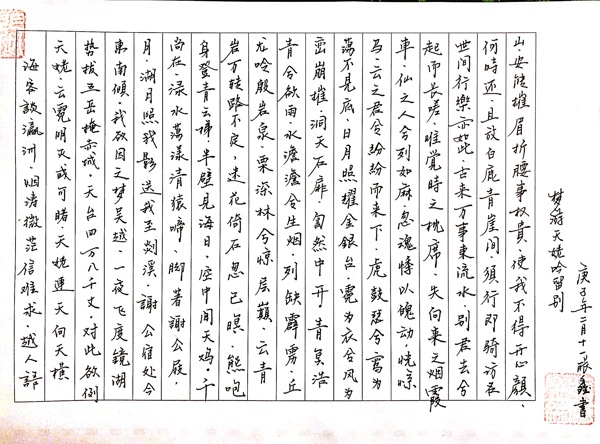 海客談瀛洲.烟涛微茫信難求.越人語
天姥.云霓明灭或可睹.天姥連天向天橫
势拔五岳掩赤城.天台四万八千丈.对此欲倒
東南倾.我欲因之梦吴越.一夜飞度鏡湖
月.湖月照我影.送我至剡溪.謝公宿处今
尚在.渌水荡漾清猿啼.脚著謝公屐.
身登青云梯.半壁見海日.空中闻天鸡.千
岩万转路不定.迷花倚石忽已暝.熊咆
龙吟殷岩泉.栗深林兮惊层巅.云青
青兮欲雨.水澹澹兮生烟.列缺霹雳.丘
峦崩摧.洞天石扉.訇然中开.青冥浩
荡不見底.日月照耀金銀台.霓为衣兮风为
马.云之君兮紛紛而来下.虎鼓瑟兮鸾为
車.仙之人兮列如麻.忽魂悸以魄动.恍惊
起而長嗟.唯覺時之枕席.失向来之烟霞
世间行樂亦如此.古来万事東流水.别君去兮
何時还.且放白鹿青崖间.須行即騎访名
山.安能摧眉折腰事权貴.使我不得开心颜.
梦游天姥吟留别
庚子年二月十一 書